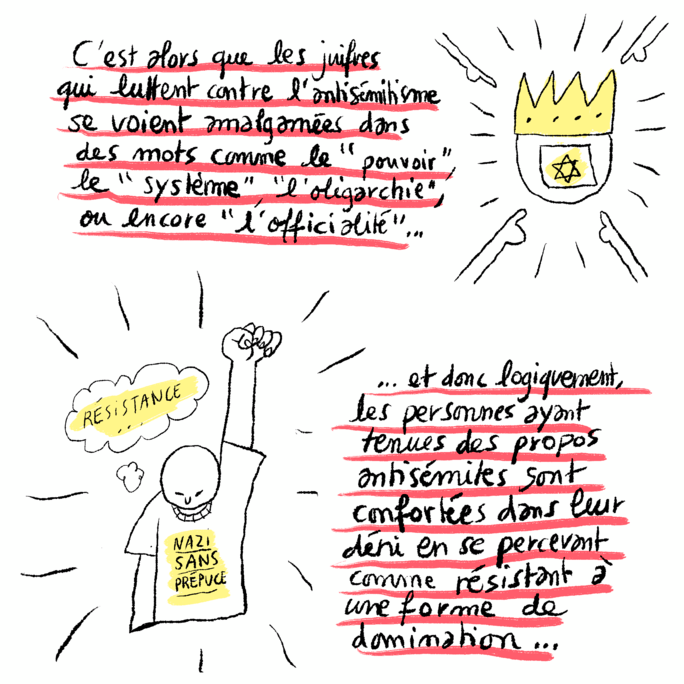 C'est alors que les juifves
qui luttent contre l'antisémitisme
se voient amalgamées dans
des mots comme le "pouvoir",
le "système", "l'oligarchie",
ou encore "l'officialité"...
RÉSISTANCE
...
NAZI
SANS
PRÉPUCE
... et donc logiquement,
les personnes ayant
tenues des propos
antisémites sont
confortées dans leur
déni en se percevant
comme résistant à
une forme de
domination...